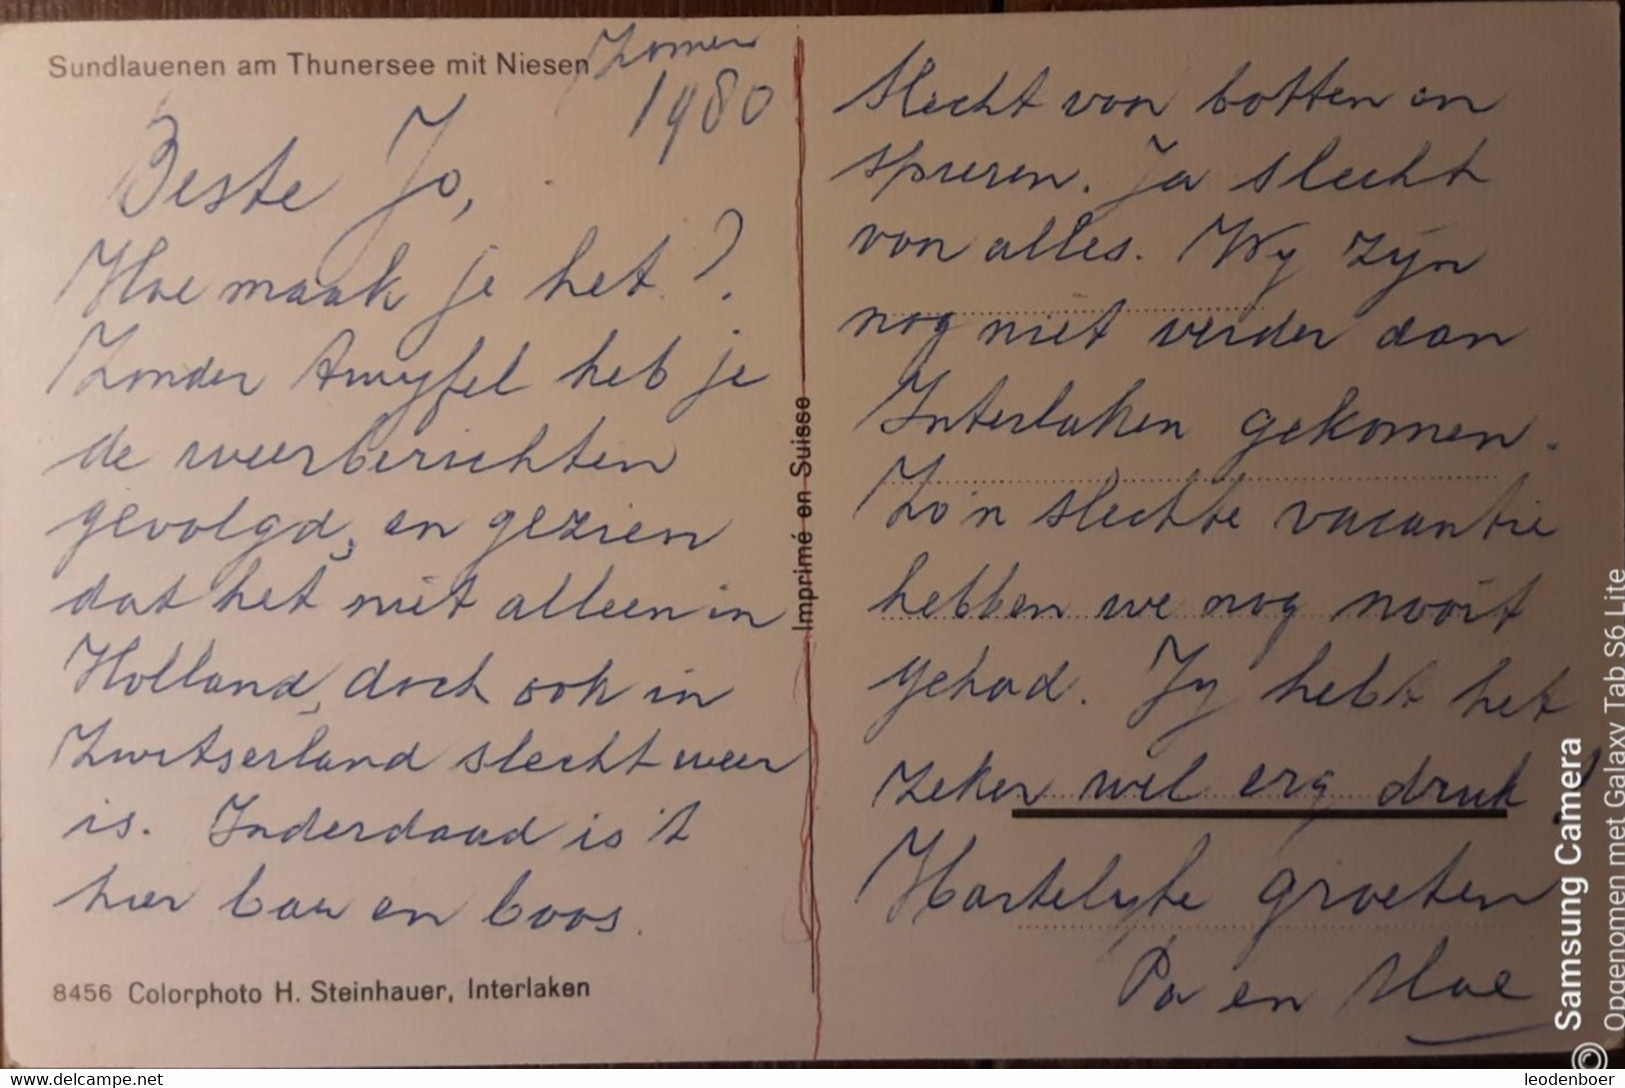 Sundlauenen am Thunersee mit Niesen
Zomer
1980
Beste Jo,
Hoe maak je het?
Zonder twyfel heb je
de weerberichten
gevolgd, en gezien
dat het niet alleen in
Holland, doch ook in
Zwitserland slecht weer
is. Inderdaad is 't
hier bar en boos.
8456 Colorphoto H. Steinhauer, Interlaken
Imprimé en Suisse
Slecht van botten en
spieren. Ja slecht
van alles. Wy zyn
nog niet verder dan
Interlaken gekomen.
Zo'n slechte vacantie
hebben we nog nooit
gehad. Jy hebt het
zeker wel erg druk!
Hartelyke groeten
Pa en Moe
Samsung Camera
Opgenomen met Galaxy Tab S6 Lite
https://www.delcampe.net
leodenboer